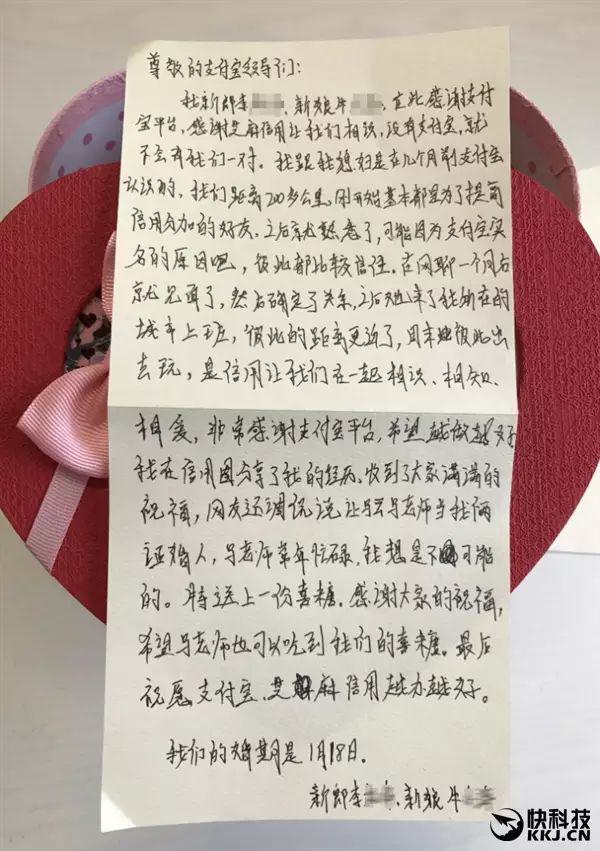 尊敬的支付宝领导们:
我新郎李 、新娘牛 、在此感谢支付
宝平台,感谢芝麻信用让我们相识,没有支付宝,就
不会有我们一对。我跟我媳妇是在几个月前支付宝
认识的,我们距离200多公里,刚开始基本都是为了提高
信用分加的好友、之后就熟悉了,可能因为支付宝实
名的原因吧,彼此都比较信任。在网聊一个月后
就见面了,然后确定了关系,之后她来了我所在的
城市上班,彼此的距离更近了,周末也彼此出
去玩,是信用让我们在一起相识、相知、
相爱,非常感谢支付宝平台,希望越做越好
我在信用圈分享了我的经历、收到了大家满满的
祝福,网友还调侃说让马云马老师当我俩
证婚人,马老师常年忙碌,我想是不可能
的。特送上一份喜糖。感谢大家的祝福,
希望马老师也可以吃到我们的喜糖。最后
祝愿支付宝、芝麻信用越办越好。
我们的婚期是1月18日.
新郎李 、新娘牛
快科技
KKJ.CN